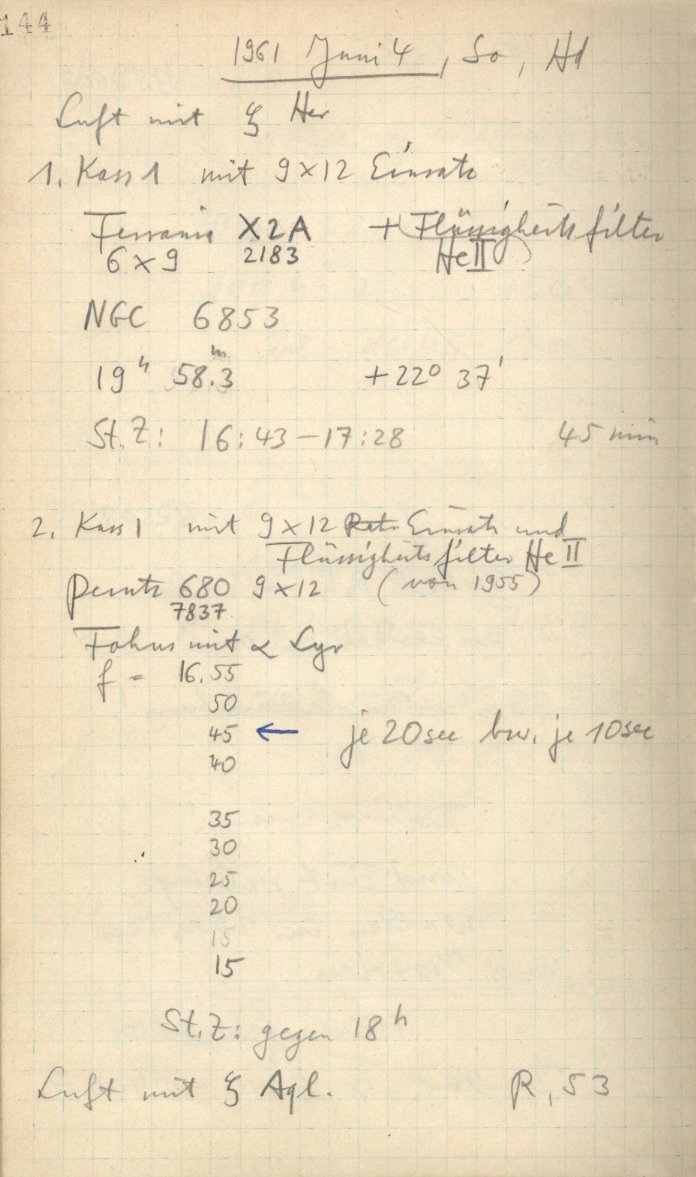 144
1961 Juni 4, So, Hd
Luft mit ξ Her
1. Kass 1 mit 9 x 12 Einsatz
Ferrania X2A + Flüssigkeitsfilter
6 x 9 2183 HeII
NGC 6853
19h 58.3m +22° 37'
St.Z: 16:43 – 17:28 45 min
2. Kass 1 mit 9 x 12 Einsatz und
Flüssigkeitsfilter He II
Perutz 680 9 x 12 (von 1955)
7837
Fokus mit α Lyr
f = 16.55
50
45 ← je 20sec bzw. je 10sec
40
35
30
25
20
15
15
St.Z: gegen 18h
Luft mit ξ Aql. R, 53